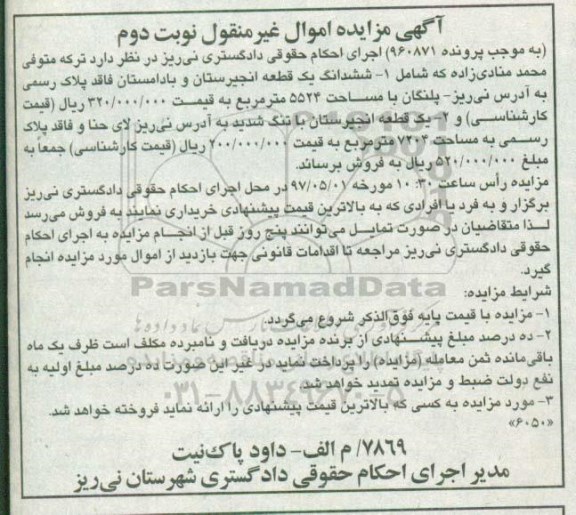 آگهی مزایده اموال غیرمنقول نوبت دوم
(به موجب پرونده ۹۶۰۸۷۱) اجرای احکام حقوقی دادگستری نی‌ریز در نظر دارد ترکه متوفی
محمد منادی‌زاده که شامل ۱- ششدانگ یک قطعه انجیرستان و بادامستان فاقد پلاک رسمی
به آدرس نی‌ریز- پلنگان با مساحت ۵۵۲۴ مترمربع به قیمت ۳۲۰/۰۰۰/۰۰۰ ریال (قیمت
کارشناسی) و ۲- یک قطعه انجیرستان با تنگ شدید به آدرس نی‌ریز لای حنا و فاقد پلاک
رسمی به مساحت ۷۳۰۲ مترمربع به قیمت ۲۰۰/۰۰۰/۰۰۰ ریال (قیمت کارشناسی) جمعاً به
مبلغ ۵۲۰/۰۰۰/۰۰۰ ریال به فروش برساند.
مزایده رأس ساعت ۱۰:۳۰ مورخه ۹۷/۰۵/۰۱ در محل اجرای احکام حقوقی دادگستری نی‌ریز
برگزار و به فرد یا افرادی که به بالاترین قیمت پیشنهادی خریداری نمایند به فروش می‌رسد
لذا متقاضیان در صورت تمایل می‌توانند پنج روز قبل از انجام مزایده به اجرای احکام
حقوقی دادگستری نی‌ریز مراجعه تا اقدامات قانونی جهت بازدید از اموال مورد مزایده انجام
گیرد.
ParsNamadData
شرایط مزایده:
۱- مزایده با قیمت پایه فوق‌الذکر شروع می‌گردد.
۲- ده درصد مبلغ پیشنهادی از برنده مزایده دریافت و نامبرده مکلف است ظرف یک ماه
باقی‌مانده ثمن معامله (مزایده) را پرداخت نماید در غیر این صورت ده درصد مبلغ اولیه به
نفع دولت ضبط و مزایده تمدید خواهد شد.
۰۲۱-۸۸۳۴۹۶۷۰-۵
۳- مورد مزایده به کسی که بالاترین قیمت پیشنهادی را ارائه نماید فروخته خواهد شد.
«۶۰۵۰»
۷۸۶۹/ م الف- داود پاک‌نیت
مدیر اجرای احکام حقوقی دادگستری شهرستان نی‌ریز